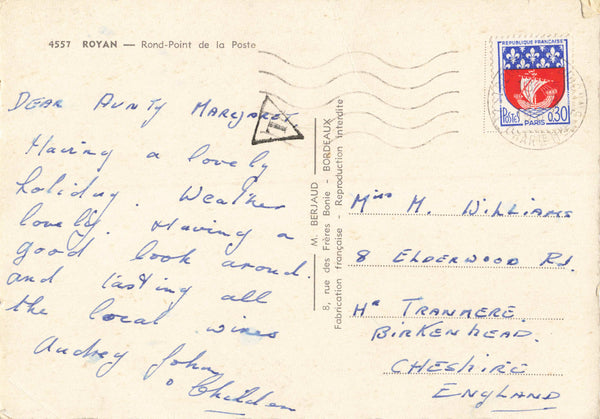 4557 ROYAN — Rond-Point de la Poste
DEAR AUNTY MARGARET
Having a lovely
holiday. Weather
lovely. Having a
good look around.
and tasting all
the local wines
Audrey John
& Children
T
M. BERJAUD
8, rue des Frères Bonie - BORDEAUX
Fabrication française - Reproduction interdite
REPUBLIQUE FRANÇAISE
Postes
0,30
PARIS
Miss M. WILLIAMS
8 ELDERWOOD RD.
Hr TRANMERE
BIRKENHEAD.
CHESHIRE
ENGLAND